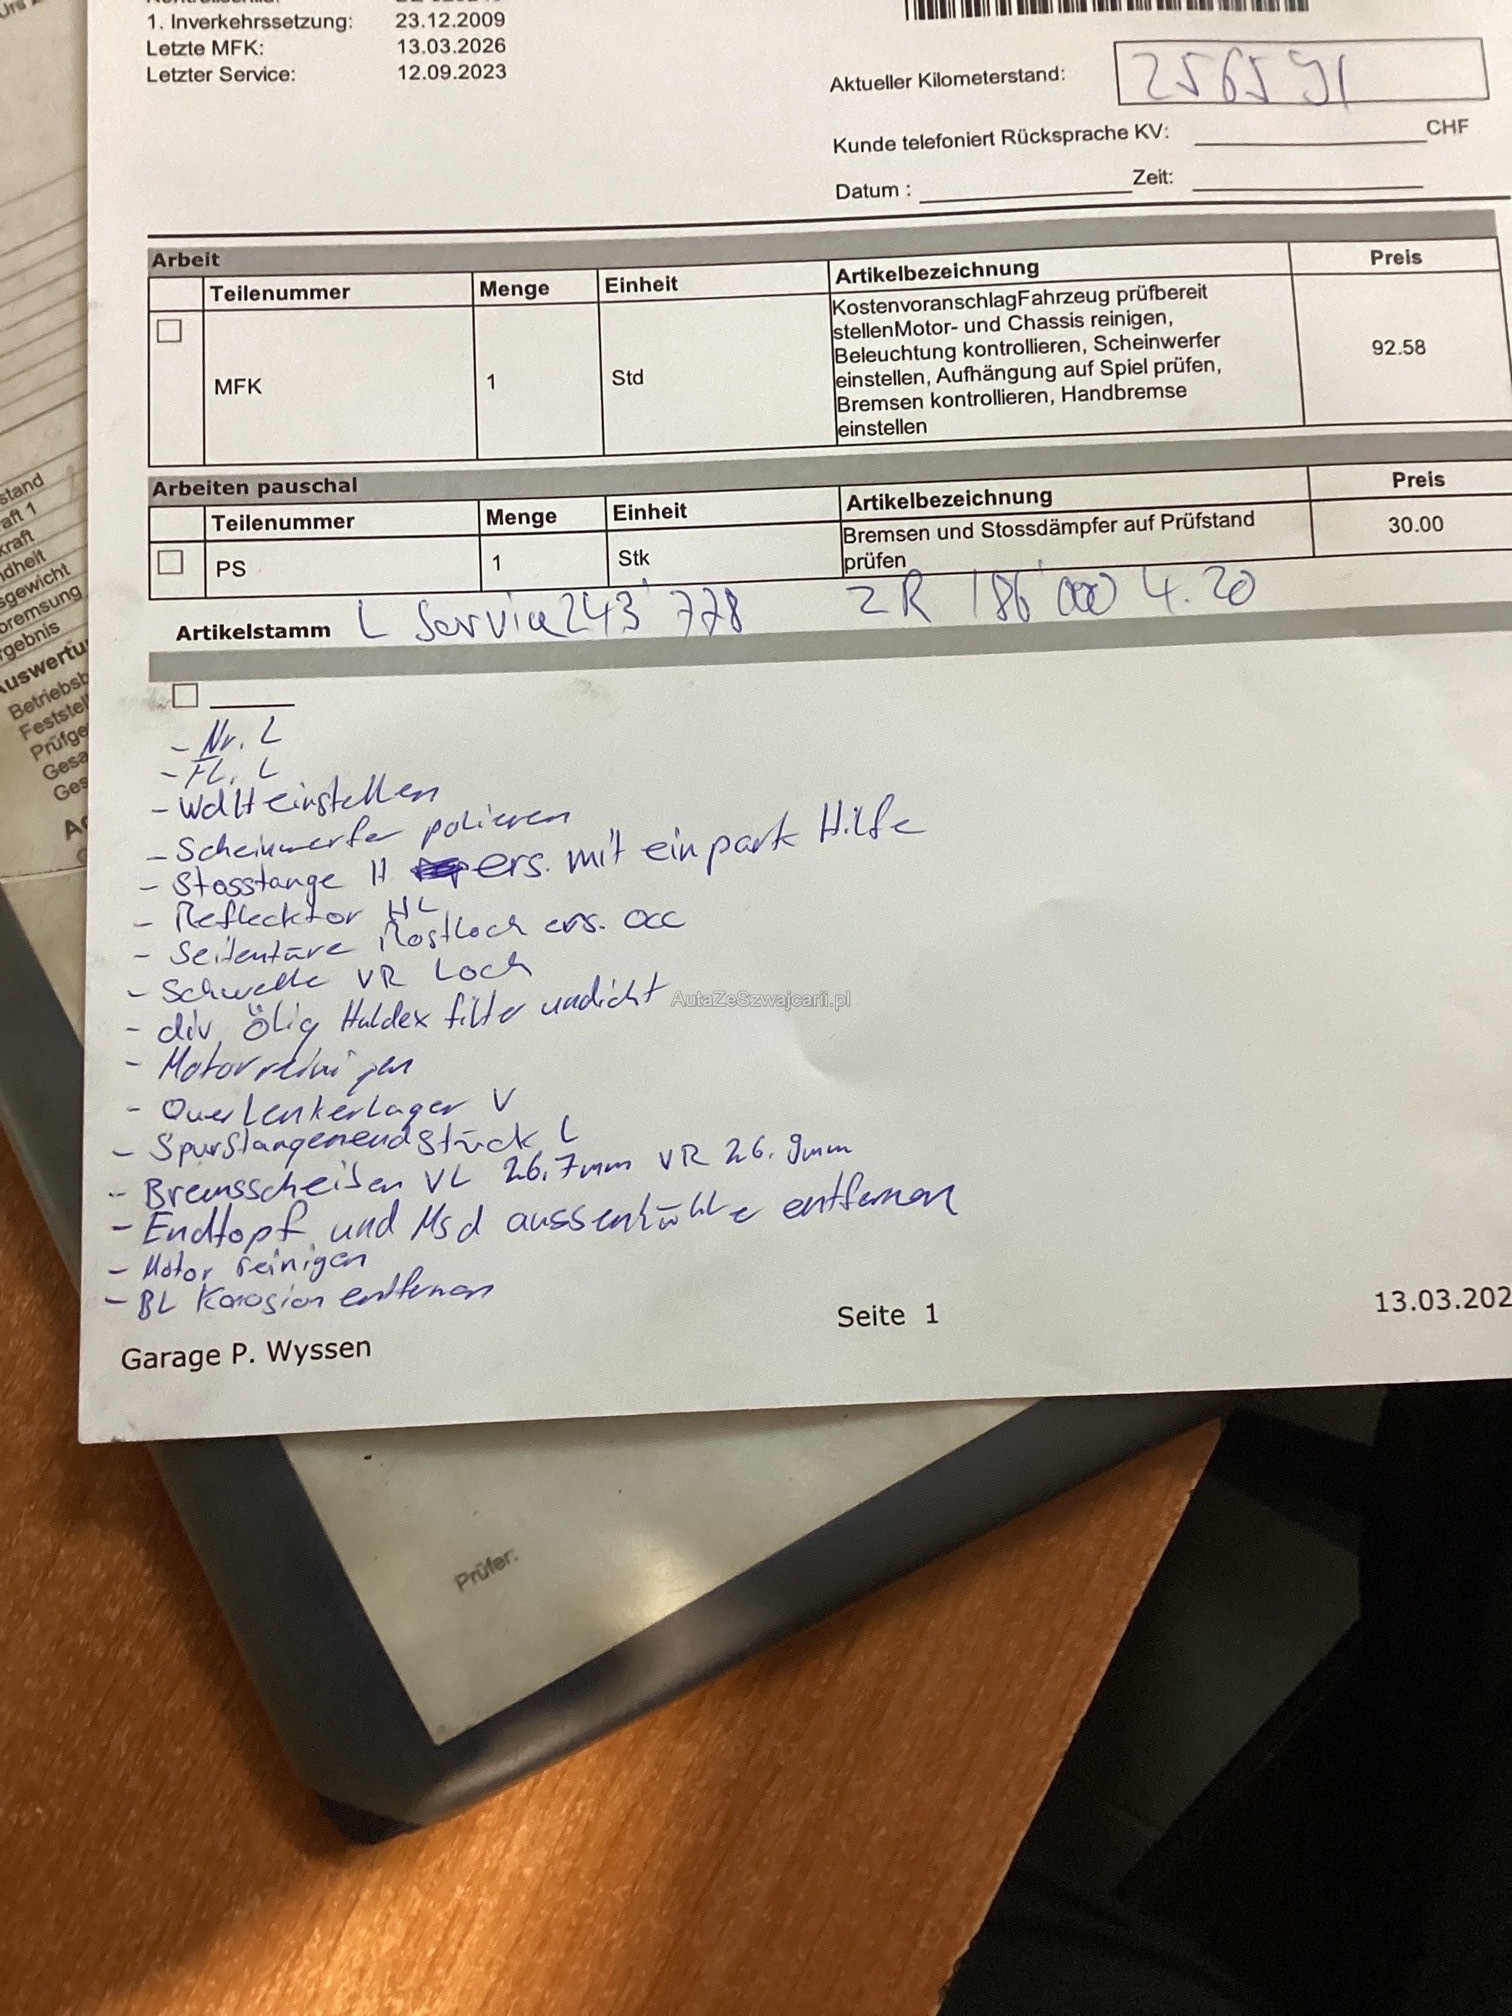 1. Inverkehrssetzung: 23.12.2009
Letzte MFK: 13.03.2026
Letzter Service: 12.09.2023
Aktueller Kilometerstand: 256591
Kunde telefoniert Rücksprache KV: CHF
Datum : Zeit:
Arbeit
Teilenummer Menge Einheit Artikelbezeichnung Preis
MFK 1 Std KostenvoranschlagFahrzeug prüfbereit
stellenMotor- und Chassis reinigen,
Beleuchtung kontrollieren, Scheinwerfer
einstellen, Aufhängung auf Spiel prüfen,
Bremsen kontrollieren, Handbremse
einstellen
92.58
Arbeiten pauschal
Teilenummer Menge Einheit Artikelbezeichnung Preis
PS 1 Stk Bremsen und Stossdämpfer auf Prüfstand
prüfen
30.00
Artikelstamm L Service 243'778 ZR 186'000 4.20
- Nr. L
- FL. L
- einstellen
- Scheinwerfer polieren
- Stosstange H ers. mit einpark Hilfe
- Reflecktor HL
- Seitentüre Rostloch ers. occ
- Schwelle VR Loch
- div ölig Haldex filter undicht
- Motor reinigen
- Querlenkerlager V
- Spurstangenendstück L
- Bremsscheiben VL 26.7mm VR 26.9mm
- Endtopf und Msd entfernen
- Motor reinigen
- BL Korosion entfernen
Garage P. Wyssen
Seite 1
13.03.202
AutaZeSzwajcarii.pl
Prüfer:
stand
aft 1
kraft
ndheit
sgewicht
bremsung
rgebnis
Auswertu
Betriebsb
Feststel
Prüfge
Gesa
Ges